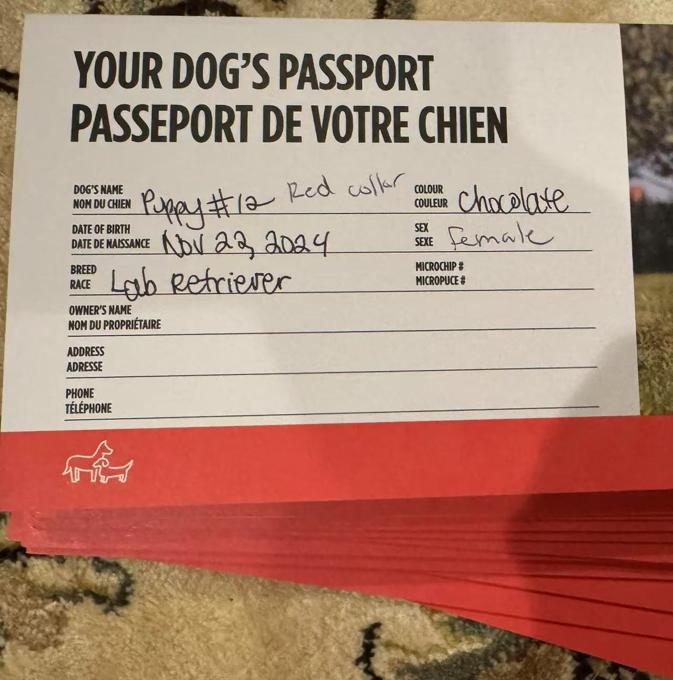 YOUR DOG'S PASSPORT
PASSEPORT DE VOTRE CHIEN
DOG'S NAME
NOM DU CHIEN Puppy #12 Red collar
COLOUR
COULEUR chocolate
DATE OF BIRTH
DATE DE NAISSANCE Nov 22, 2024
SEX
SEXE female
BREED
RACE Lab Retriever
MICROCHIP #
MICROPUCE #
OWNER'S NAME
NOM DU PROPRIÉTAIRE
ADDRESS
ADRESSE
PHONE
TÉLÉPHONE